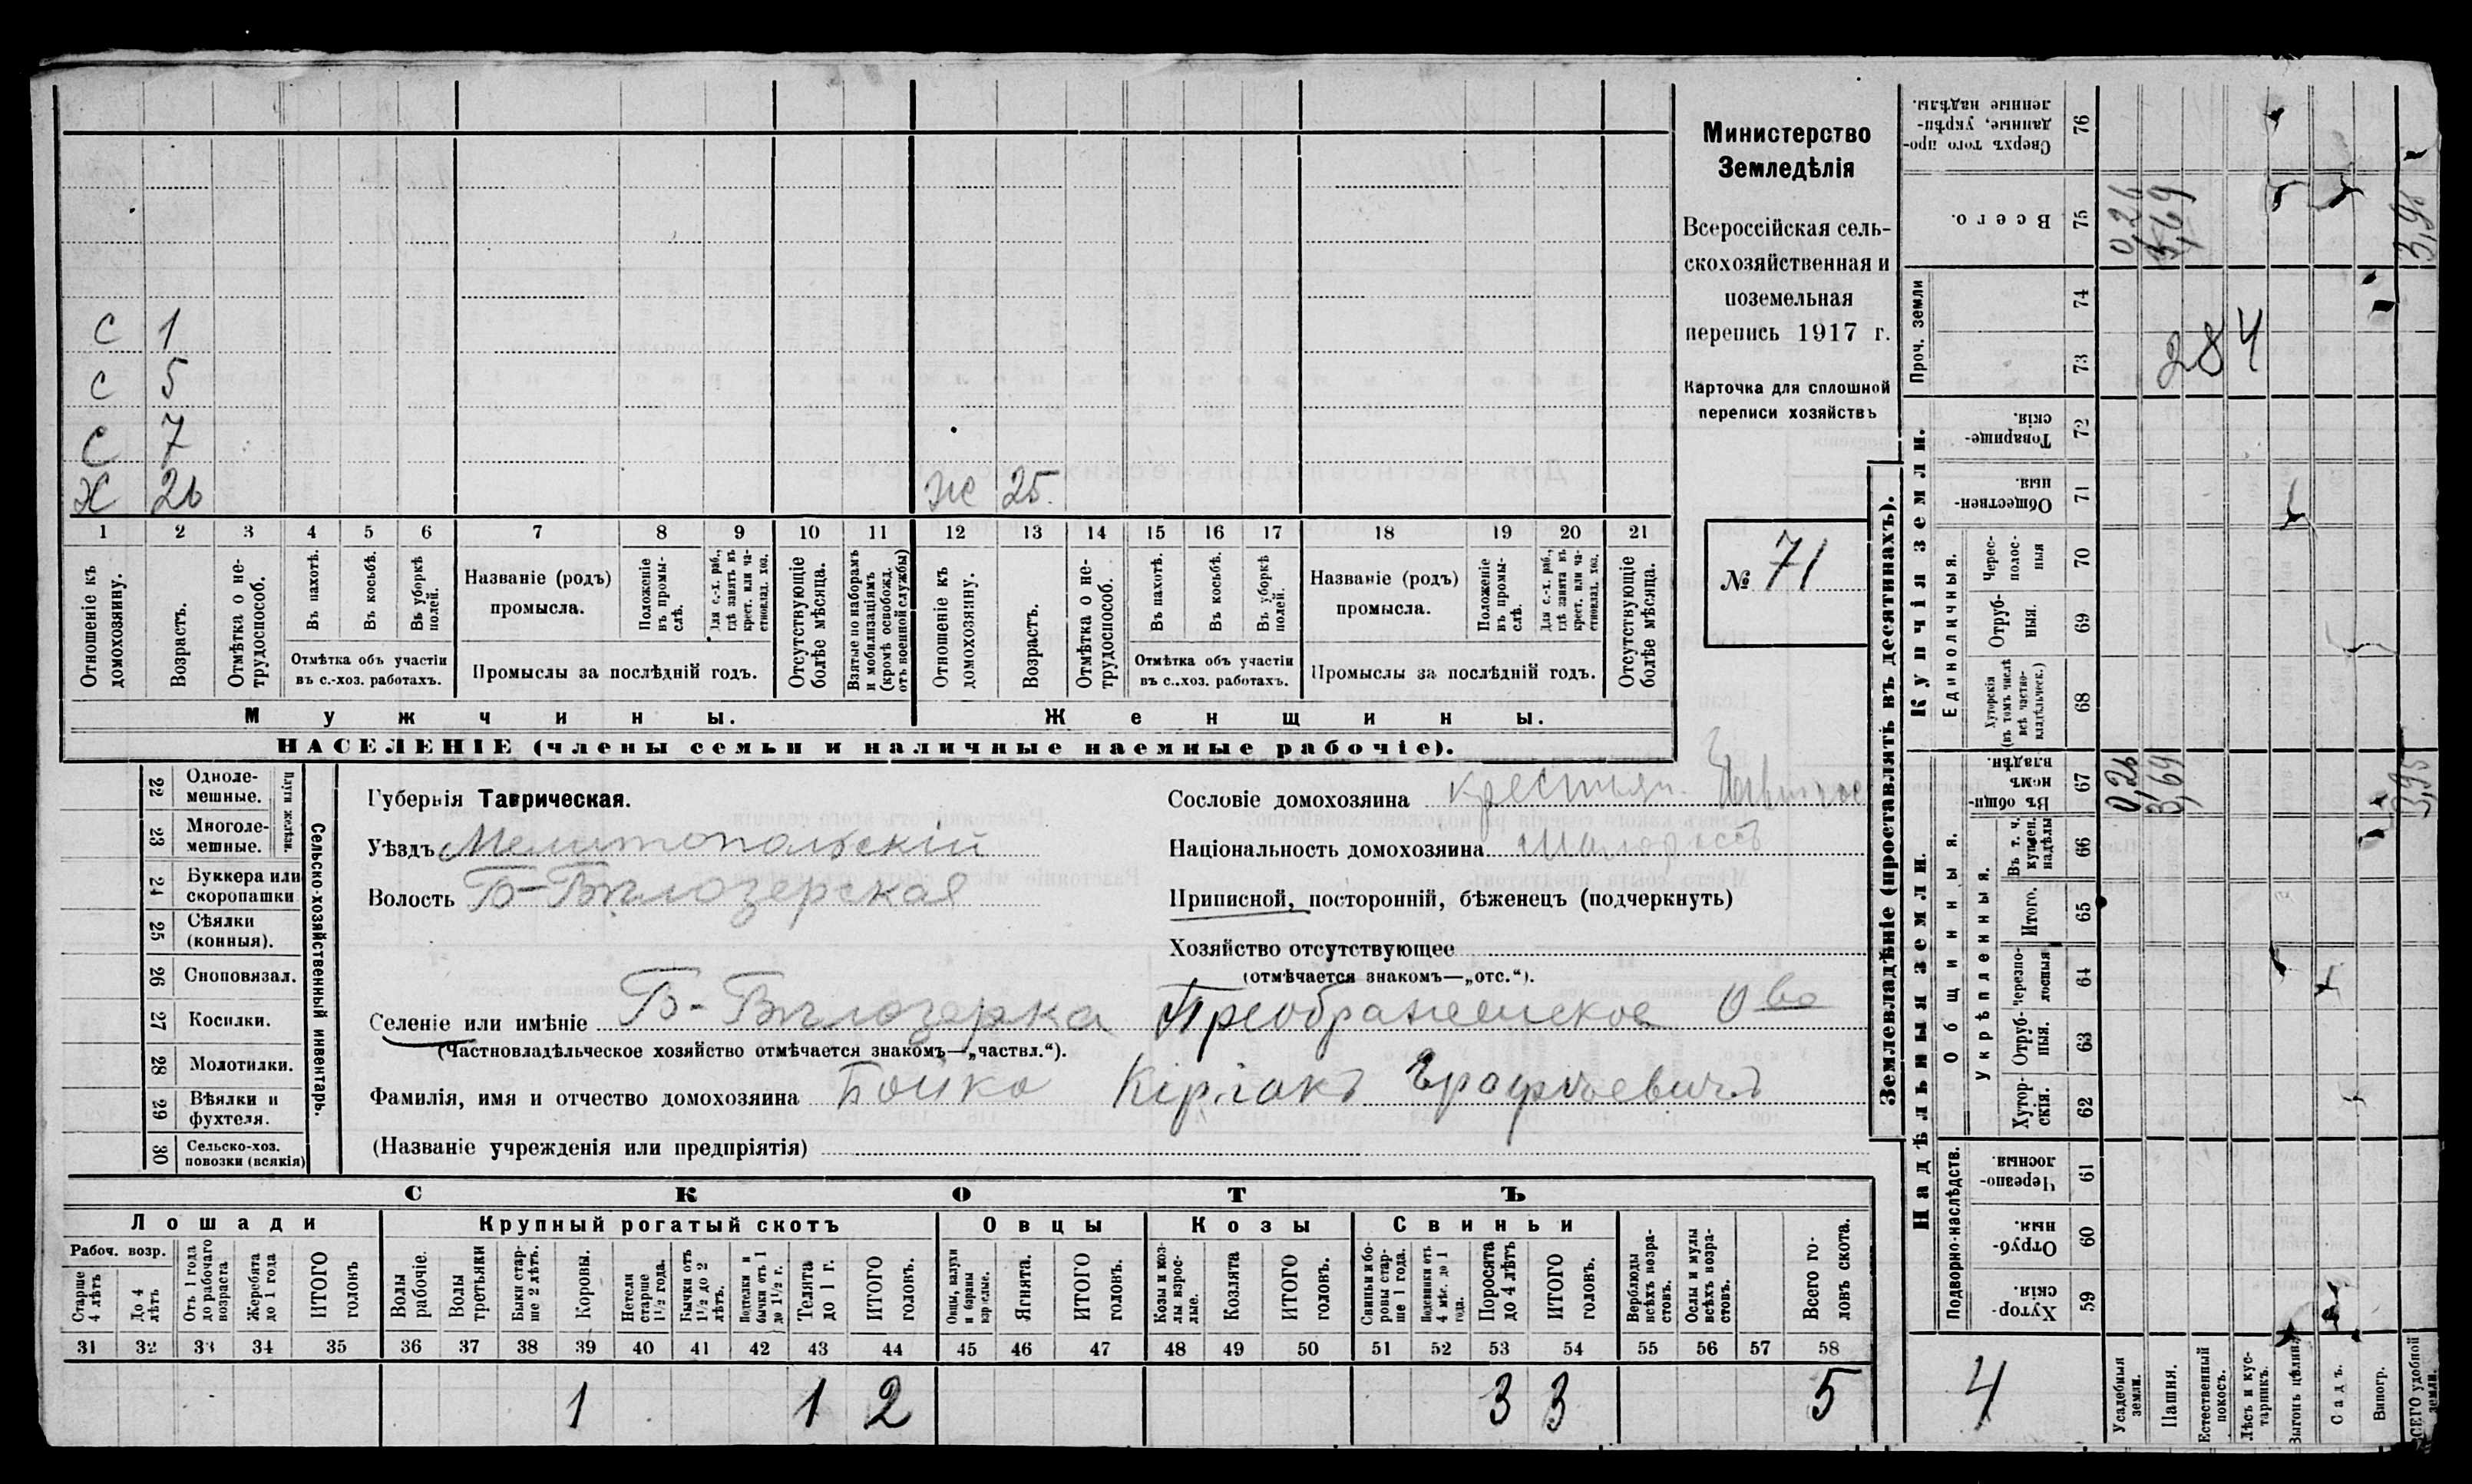 С 1
С 5
С 7
Х 26 Же 25.
1 2 3 4 5 6 7 8 9 10 11 12 13 14 15 16 17 18 19 20 21
Отношеніе къ домохозяину.
Возрастъ.
Отмѣтка о не-трудоспособ.
Въ пахотѣ.
Въ косьбѣ.
Въ уборкѣ полей.
Отмѣтка объ участіи
въ с.-хоз. работахъ.
Названіе (родъ)
промысла.
Положеніе въ промы-слѣ.
Для с.-х. раб., гдѣ занятъ въ крест. или ча-стновлад. хоз.
Промыслы за послѣдній годъ.
Отсутствующіе болѣе мѣсяца.
Взятые по наборамъ и мобилизаціямъ (кромѣ освобожд. отъ военной службы)
Отношеніе къ домохозяину.
Возрастъ.
Отмѣтка о не-трудоспособ.
Въ пахотѣ.
Въ косьбѣ.
Въ уборкѣ полей.
Отмѣтка объ участіи
въ с.-хоз. работахъ.
Названіе (родъ)
промысла.
Положеніе въ промы-слѣ.
Для с.-х. раб., гдѣ занята въ крест. или ча-стновлад. хоз.
Промыслы за послѣдній годъ.
Отсутствующіе болѣе мѣсяца.
Мужчины. Женщины.
НАСЕЛЕНІЕ (члены семьи и наличные наемные рабочіе).
Министерство
Земледѣлія
Всероссійская сель-
скохозяйственная и
поземельная
перепись 1917 г.
Карточка для сплошной
переписи хозяйствъ
№ 71
22 Одноле-мешные.
23 Многоле-мешные.
Плуги желѣзн.
24 Буккера или скоропашки
25 Сѣялки (конныя).
26 Сноповязал.
27 Косилки.
28 Молотилки.
29 Вѣялки и фухтеля.
30 Сельско-хоз. повозки (всякія)
Сельско-хозяйственный инвентарь.
Губернія Таврическая.
Уѣздъ Мелитопольскій
Волость Б-Бѣлозерская
Селеніе или имѣніе Б-Бѣлозерка Преображенское О во
(Частновладѣльческое хозяйство отмѣчается знакомъ—„частвл.“).
Фамилія, имя и отчество домохозяина Бойко Кіріакъ
(Названіе учрежденія или предпріятія)
Сословіе домохозяина крестьян.
Національность домохозяина Малоросъ
Приписной, посторонній, бѣженецъ (подчеркнуть)
Хозяйство отсутствующее
(отмѣчается знакомъ—„отс.“).
СКОТЪ
Лошади Крупный рогатый скотъ Овцы Козы Свиньи
Рабоч. возр.
Старше 4 лѣтъ
До 4 лѣтъ
Отъ 1 года до рабочаго возраста
Жеребята до 1 года
ИТОГО головъ
Волы рабочіе.
Волы третьяки
Быки стар-ше 2 лѣтъ.
Коровы.
Нетели старше 1½ года.
Бычки отъ 1½ до 2 лѣтъ.
Подтелки и бычки отъ 1 до 1½ г.
Телята до 1 г.
ИТОГО головъ.
Овцы, валухи и бараны взрослые.
Ягнята.
ИТОГО головъ.
Козы и коз-лы взрос-лые.
Козлята
ИТОГО головъ.
Свиньи и бо-ровы стар-ше 1 года.
Подсвинки отъ 4 мѣс. до 1 года.
Поросята до 4 лѣтъ
ИТОГО головъ.
Верблюды всѣхъ возра-стовъ.
Ослы и мулы всѣхъ возра-стовъ.
Всего го-ловъ скота.
31 32 33 34 35 36 37 38 39 40 41 42 43 44 45 46 47 48 49 50 51 52 53 54 55 56 57 58
1 1 2 3 3 5
Землевладѣніе (проставлять въ десятинахъ).
Надѣльныя земли.
Купчія земли.
Проч. земли
Подворно-наслѣдств.
Общинныя.
Укрѣпленныя.
Единоличныя.
76 Сверхъ того про-данные, укрѣп-ленные надѣлы.
75 Всего. 0,26 3,69 3,95
74
73
284
72 Товарище-скія.
71 Обществен-ныя.
70 Черес-полос-ныя
69 Отруб-ныя.
68 Хуторскія (въ томъ числѣ всѣ частно-владѣльческ.)
67 Въ общин-номъ владѣн. 0,26 3,69 3,95
66 Въ т. ч. куплен. надѣлы
65 Итого.
64 Черезпо-лосныя
63 Отруб-ныя.
62 Хутор-скія.
61 Черезпо-лосныя.
60 Отруб-ныя.
59 Хутор-скія.
4
Усадебныя земли.
Пашня.
Естественный покосъ.
Лѣсъ и кус-тарникъ.
Выгонъ цѣлина
Садъ.
Виногр.
ВСЕГО удобной земли.